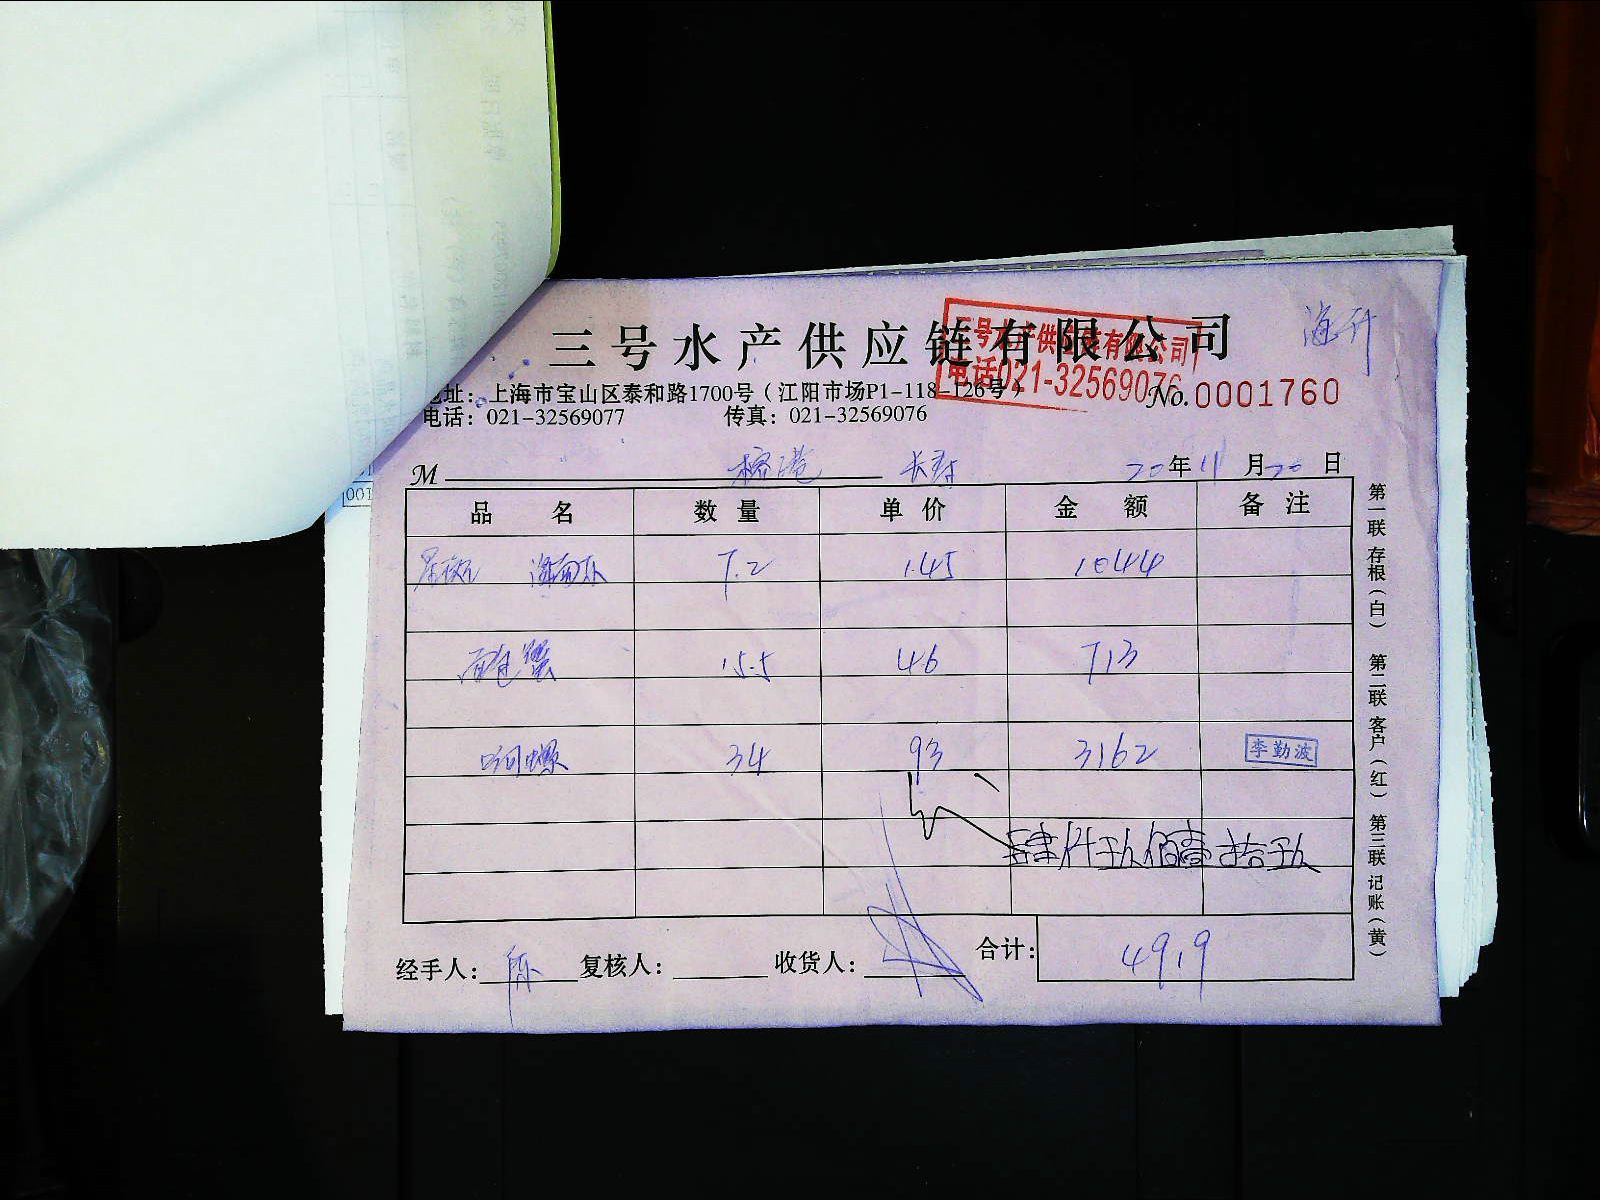 三号水产供应链有限公司
海升
三号水产供应链有限公司
电话021-32569076
地址：上海市宝山区泰和路1700号（江阳市场P1-118-126号）
No.0001760
电话：021-32569077 传真：021-32569076
M 榕港 长寿 20年11月20日
品名 数量 单价 金额 备注
7.2 145 1044
面包蟹 15.5 46 713
响螺 34 93 3162 李勤波
肆仟玖佰壹拾玖
经手人：陈 复核人： 收货人： 合计：4919
第一联 存根（白） 第二联 客户（红） 第三联 记账（黄）
001